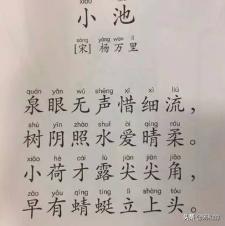 xiǎo chí
小池
sòng yáng wàn lǐ
[宋] 杨万里
quán yǎn wú shēng xī xì liú
泉眼无声惜细流，
shù yīn zhào shuǐ ài qíng róu
树阴照水爱晴柔。
xiǎo hé cái lù jiān jiān jiǎo
小荷才露尖尖角，
zǎo yǒu qīng tíng lì shàng tóu
早有蜻蜓立上头。